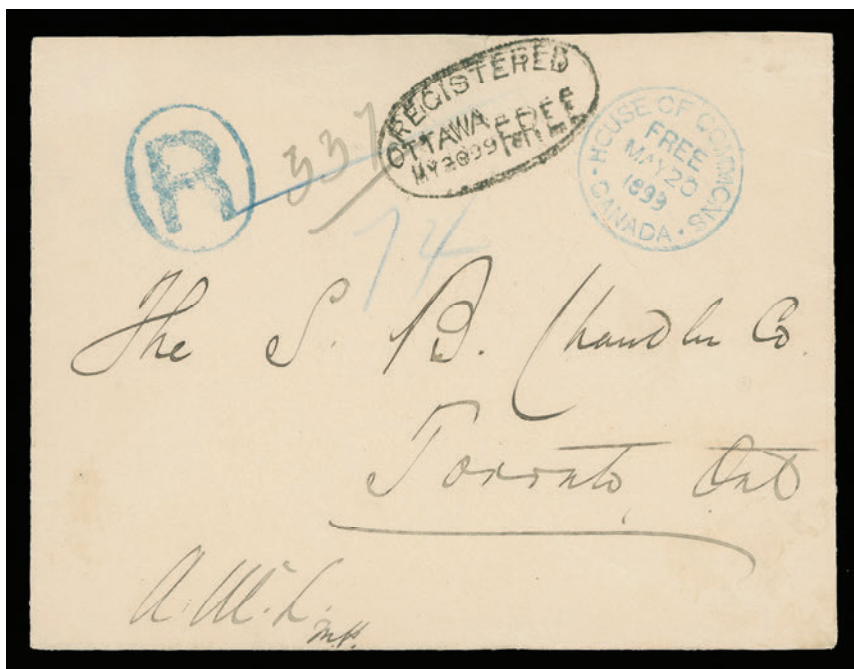 R
337
REGISTERED
OTTAWA FREE
MY 20 99
HOUSE OF COMMONS
FREE
MAY 20
1899
CANADA
74
The S. B. Chandler Co.
Toronto, Ont
A. Mc. L.
M.P.